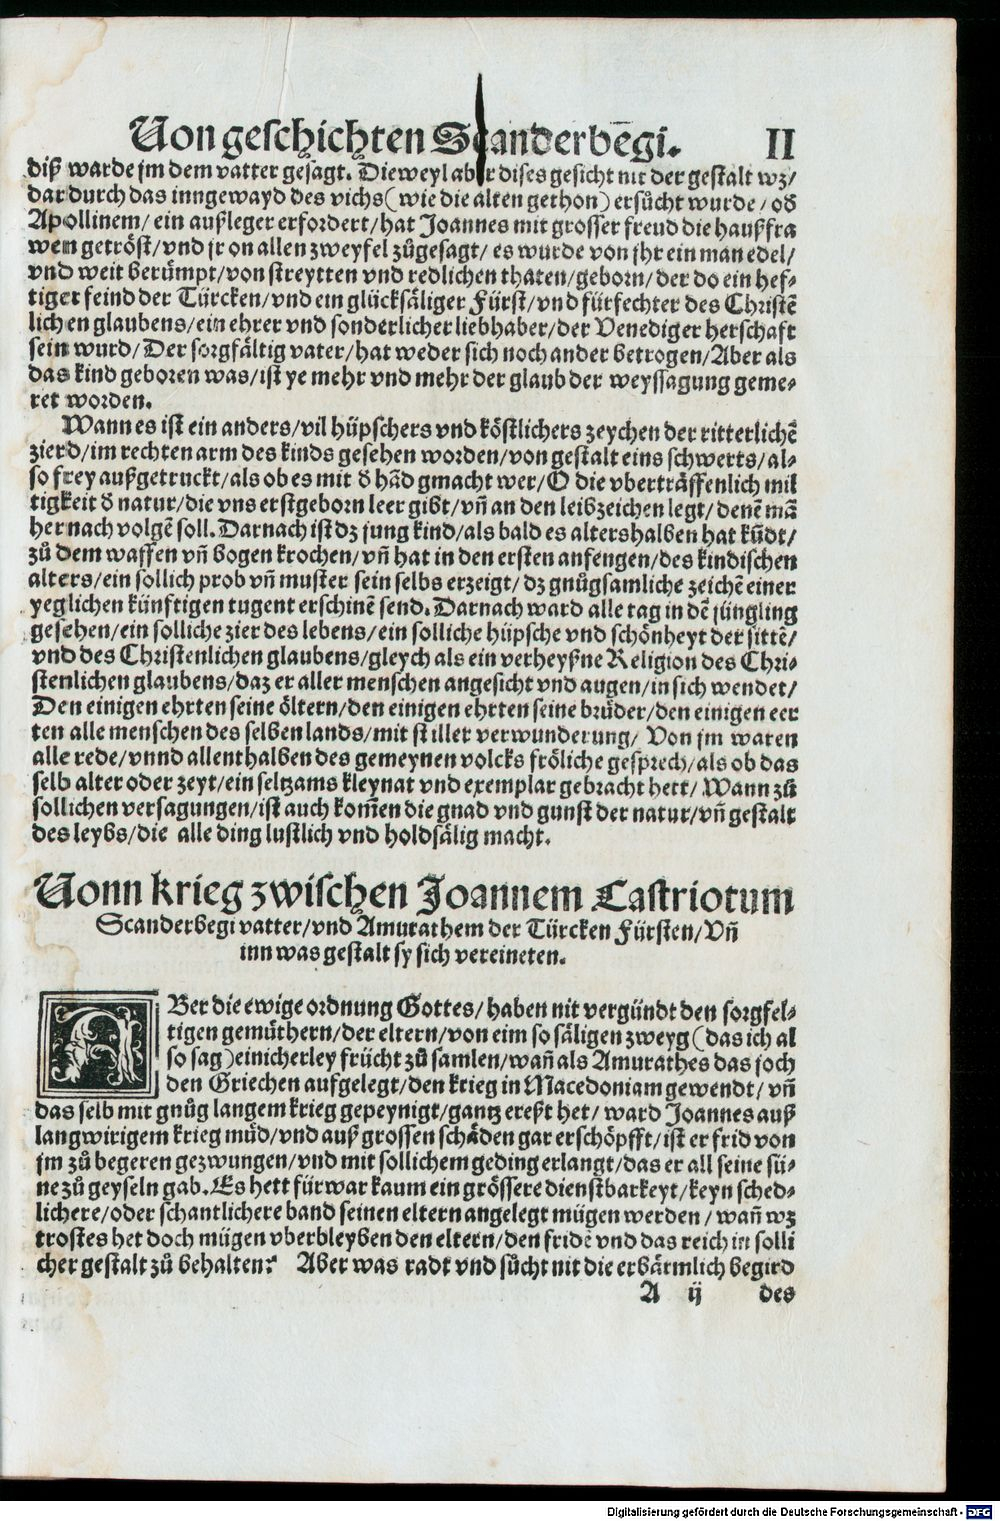 Von geschichten Scanderbēgi. II
diß warde jm dem vatter gesagt. Die weyl aber dises gesicht nit der gestalt wz/
dar durch das inngewayd des vichs (wie die alten gethon) ersůcht wurde / oď
Apollinem / ein außleger erfordert / hat Joannes mit grosser freud die haußfra
wen getröst / vnd jr on allen zweyfel zůgesagt / es wurde von jhr ein man edel /
vnd weit berůmpt / von streytten vnd redlichen thaten / geborn / der do ein hef⸗
tiger feind der Türcken / vnd ein glücksäliger Fürst / vnd fürfechter des Christē
lichen glaubens / ein ehrer vnd sonderlicher liebhaber / der Venediger herschaft
sein wurd / Der sorgfältig vater / hat weder sich noch ander betrogen / Aber als
das kind geboren was / ist ye mehr vnd mehr der glaub der weyssagung geme⸗
ret worden.
Wann es ist ein anders / vil hüpschers vnd köstlichers zeychen der ritterlichē
zierd / im rechten arm des kinds gesehen worden / von gestalt eins schwerts / al⸗
so frey außgetruckt / als ob es mit ď hād gmacht wer / O die vberträffenlich mil
tigkeit ď natur / die vns erstgeborn leer gibt / vñ an den leibzeichen legt / denē mā
her nach volgē soll. Darnach ist dz jung kind / als bald es altershalben hat kūdt /
zů dem waffen vñ bogen krochen / vñ hat in den ersten anfengen / des kindischen
alters / ein sollich prob vñ muster sein selbs erzeigt / dz gnůgsamliche zeichē einer
yeglichen künftigen tugent erschinē send. Darnach ward alle tag in dē jüngling
gesehen / ein solliche zier des lebens / ein solliche hüpsche vnd schönheyt der sittē /
vnd des Christenlichen glaubens / gleych als ein verheyßne Religion des Chri⸗
stenlichen glaubens / daz er aller menschen angesicht vnd augen / in sich wendet /
Den einigen ehrten seine öltern / den einigen ehrten seine brüder / den einigen eer
ten alle menschen des selben lands / mit stiller verwunderung / Von jm waren
alle rede / vnnd allenthalben des gemeynen volcks fröliche gesprech / als ob das
selb alter oder zeyt / ein seltzams kleynat vnd exemplar gebracht hett / Wann zů
sollichen versagungen / ist auch kom̄en die gnad vnd gunst der natur / vñ gestalt
des leybs / die alle ding lustlich vnd holdsälig macht.
Vonn krieg zwischen Joannem Castriotum
Scanderbegi vatter / vnd Amurathem der Türcken Fürsten / Vñ
inn was gestalt sy sich vereineten.
ABer die ewige ordnung Gottes / haben nit vergündt den sorgfel⸗
tigen gemüthern / der eltern / von eim so säligen zweyg (das ich al
so sag) einicherley frücht zů samlen / wañ als Amurathes das joch
den Griechen aufgelegt / den krieg in Macedoniam gewendt / vñ
das selb mit gnůg langem krieg gepeynigt / gantz ereßt het / ward Joannes auß
langwirigem krieg müd / vnd auß grossen schäden gar erschöpfft / ist er frid von
jm zů begeren gezwungen / vnd mit sollichem geding erlangt / das er all seine sü⸗
ne zů geyseln gab. Es hett fürwar kaum ein grössere dienstbarkeyt / keyn sched⸗
lichere / oder schantlichere band seinen eltern angelegt mügen werden / wañ wz
trostes het doch mügen vberbleyben den eltern / den fridē vnd das reich in solli
cher gestalt zů behalten? Aber was radt vnd sůcht nit die erbärmlich begird
A ij des
Digitalisierung gefördert durch die Deutsche Forschungsgemeinschaft - DFG